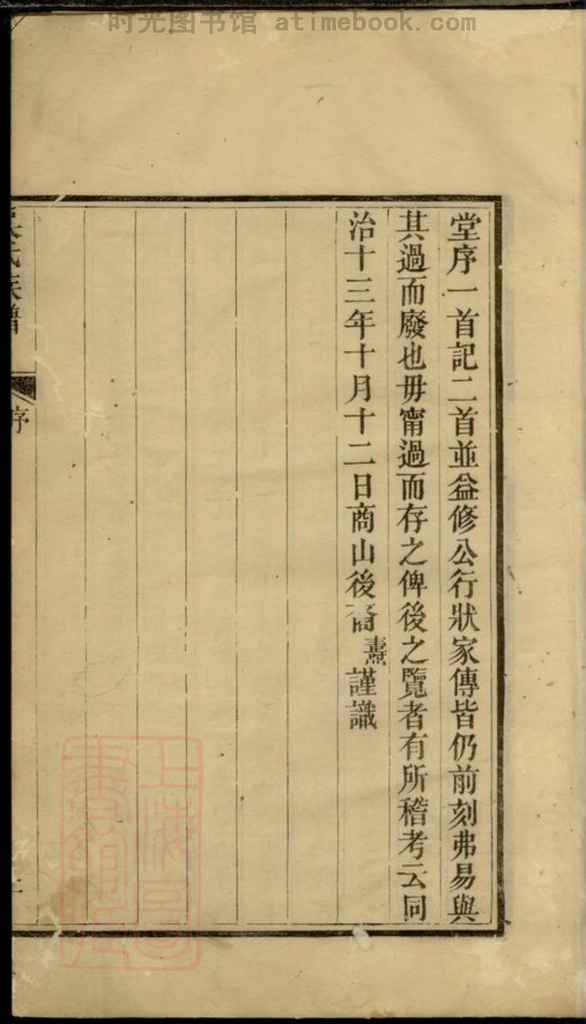 时光图书馆 atimebook.com
堂序一首記二首並益修公行狀家傳皆仍前刻弗易與
其過而廢也毋甯過而存之俾後之覽者有所稽考云同
治十三年十月十二日商山後裔燾謹識
氏族譜
序